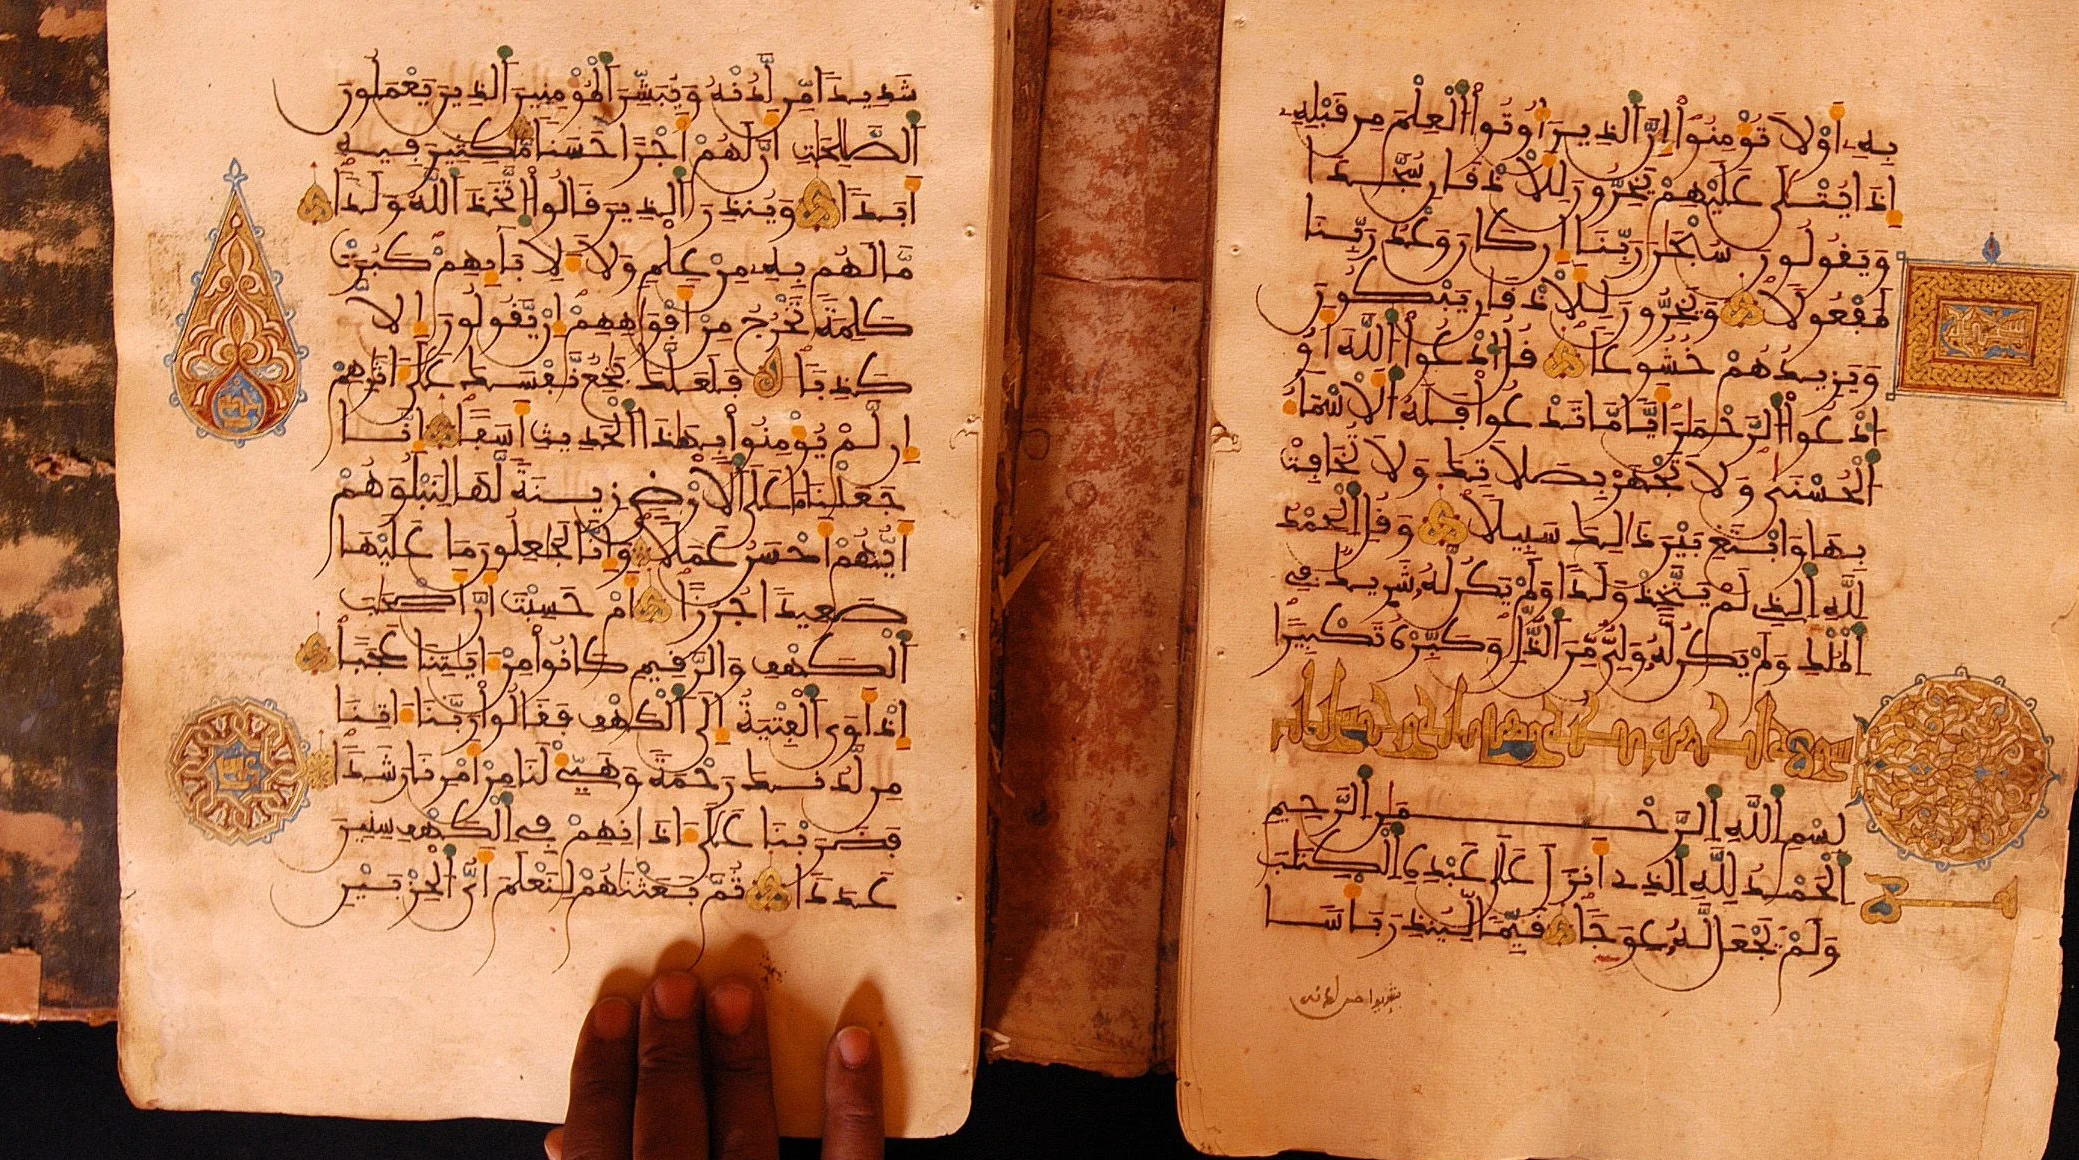 بِهِ أَوْ لَا تُؤْمِنُوا إِنَّ الَّذِينَ أُوتُوا الْعِلْمَ مِن قَبْلِهِ
إِذَا يُتْلَى عَلَيْهِمْ يَخِرُّونَ لِلْأَذْقَانِ سُجَّدًا
وَيَقُولُونَ سُبْحَٰنَ رَبِّنَا إِن كَانَ وَعْدُ رَبِّنَا
لَمَفْعُولًا وَيَخِرُّونَ لِلْأَذْقَانِ يَبْكُونَ
وَيَزِيدُهُمْ خُشُوعًا قُلُ ادْعُوا اللَّهَ أَوُ
ادْعُوا الرَّحْمَٰنَ أَيًّا مَّا تَدْعُوا فَلَهُ الْأَسْمَاءُ
الْحُسْنَى وَلَا تَجْهَرْ بِصَلَاتِكَ وَلَا تُخَافِتْ
بِهَا وَابْتَغِ بَيْنَ ذَٰلِكَ سَبِيلًا وَقُلِ الْحَمْدُ
لِلَّهِ الَّذِي لَمْ يَتَّخِذْ وَلَدًا وَلَمْ يَكُن لَّهُ شَرِيكٌ فِي
الْمُلْكِ وَلَمْ يَكُن لَّهُ وَلِيٌّ مِّنَ الذُّلِّ وَكَبِّرْهُ تَكْبِيرًا
سورة الكهف
بِسْمِ اللَّهِ الرَّحْمَٰنِ الرَّحِيمِ
الْحَمْدُ لِلَّهِ الَّذِي أَنزَلَ عَلَى عَبْدِهِ الْكِتَٰبَ
وَلَمْ يَجْعَل لَّهُ عِوَجًا قَيِّمًا لِّيُنذِرَ بَأْسًا
شديدا من لدنه
شَدِيدًا مِّن لَّدُنْهُ وَيُبَشِّرَ الْمُؤْمِنِينَ الَّذِينَ يَعْمَلُونَ
الصَّٰلِحَٰتِ أَنَّ لَهُمْ أَجْرًا حَسَنًا مَّٰكِثِينَ فِيهِ
أَبَدًا وَيُنذِرَ الَّذِينَ قَالُوا اتَّخَذَ اللَّهُ وَلَدًا
مَّا لَهُم بِهِ مِنْ عِلْمٍ وَلَا لِأَبَائِهِمْ كَبُرَتْ
كَلِمَةً تَخْرُجُ مِنْ أَفْوَاهِهِمْ إِن يَّقُولُونَ إِلَّا
كَذِبًا فَلَعَلَّكَ بَٰخِعٌ نَّفْسَكَ عَلَى ءَاثَٰرِهِمْ
إِن لَّمْ يُؤْمِنُوا بِهَٰذَا الْحَدِيثِ أَسَفًا إِنَّا
جَعَلْنَا مَا عَلَى الْأَرْضِ زِينَةً لَّهَا لِنَبْلُوَهُمْ
أَيُّهُمْ أَحْسَنُ عَمَلًا وَإِنَّا لَجَٰعِلُونَ مَا عَلَيْهَا
صَعِيدًا جُرُزًا أَمْ حَسِبْتَ أَنَّ أَصْحَٰبَ
الْكَهْفِ وَالرَّقِيمِ كَانُوا مِنْ ءَايَٰتِنَا عَجَبًا
إِذْ أَوَى الْفِتْيَةُ إِلَى الْكَهْفِ فَقَالُوا رَبَّنَا ءَاتِنَا
مِن لَّدُنكَ رَحْمَةً وَهَيِّئْ لَنَا مِنْ أَمْرِنَا رَشَدًا
فَضَرَبْنَا عَلَى ءَاذَانِهِمْ فِي الْكَهْفِ سِنِينَ
عَدَدًا ثُمَّ بَعَثْنَٰهُمْ لِنَعْلَمَ أَيُّ الْحِزْبَيْنِ